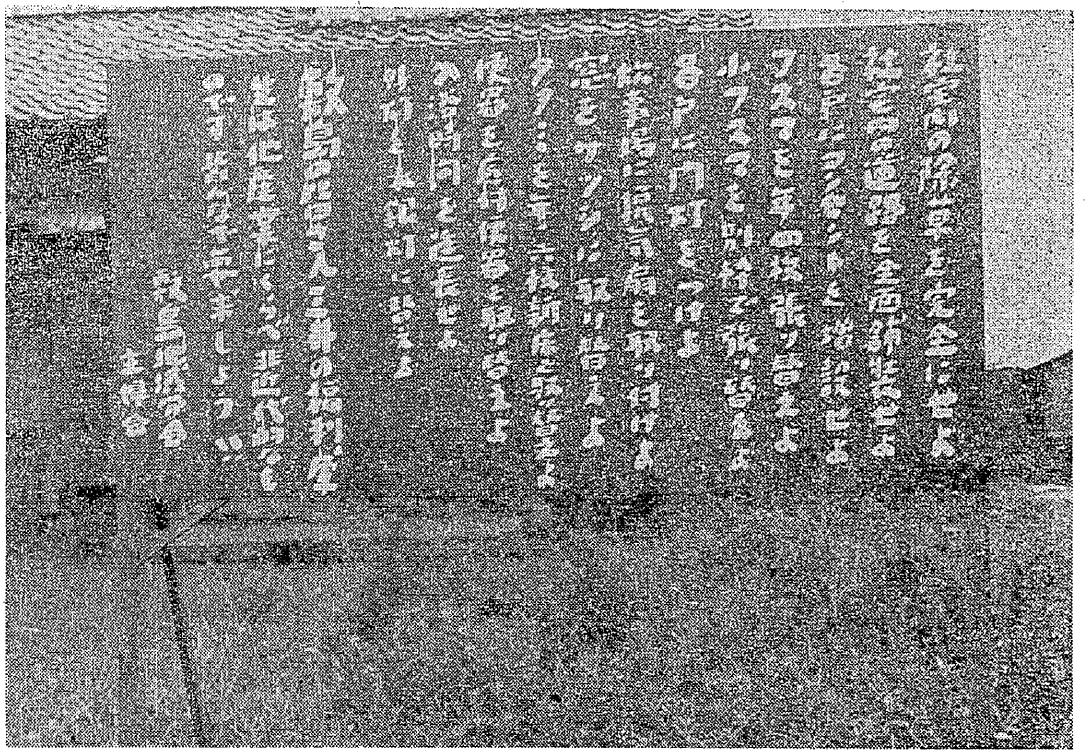 社宅前の除草を完全にせよ
社宅内の道路を全面舗装せよ
各戸にコンセントを増設せよ
フスマを年四枚張り替えよ
小フスマを別枠で張り替えよ
各戸に門灯をつけよ
炊事場に換気扇を取り付けよ
窓をサッシに取り替えよ
タタミを年六枚新床と取替えよ
便器を 便器と取り替えよ
入浴時間を延長せよ
外灯を水銀灯に替えよ
敷島 の福利厚生
は他産業にくらべ非近代的なも
のです皆な ましょう
敷島 分会
主婦会